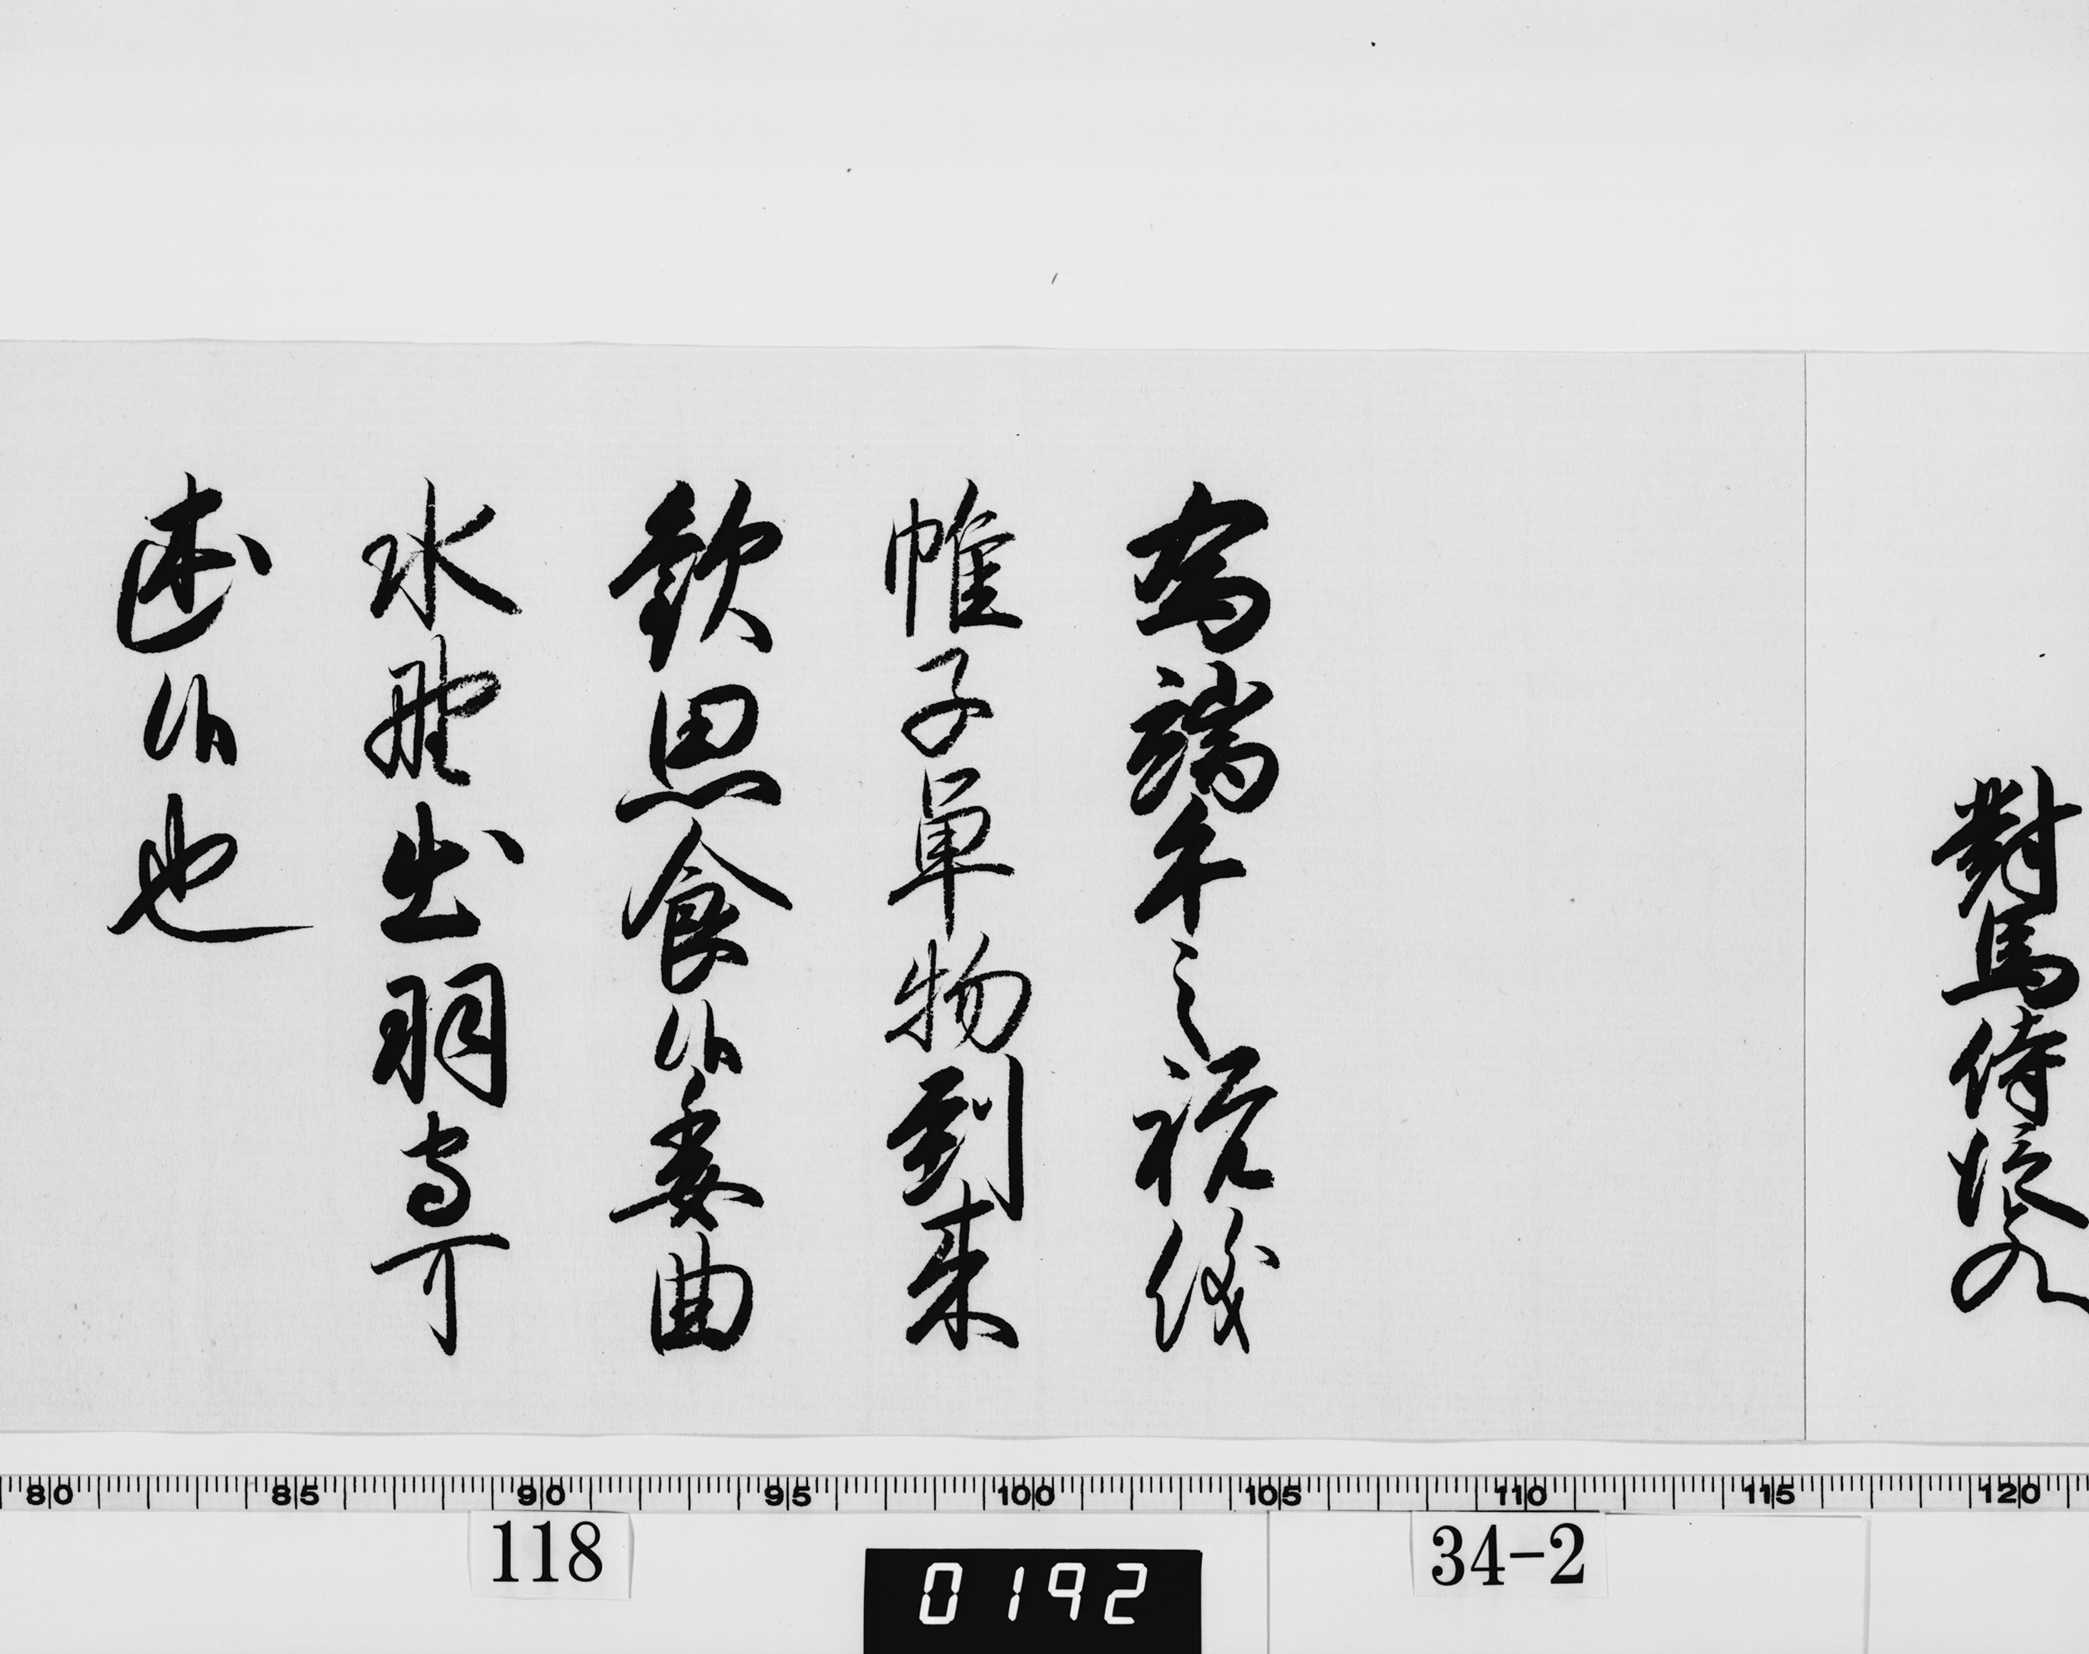 對馬侍従殿
為端午之祝儀
帷子単物到来
歓思食候委曲
水野出羽守可
述候也
80 85 90 95 100 105 110 115 120
118
34-2
0192